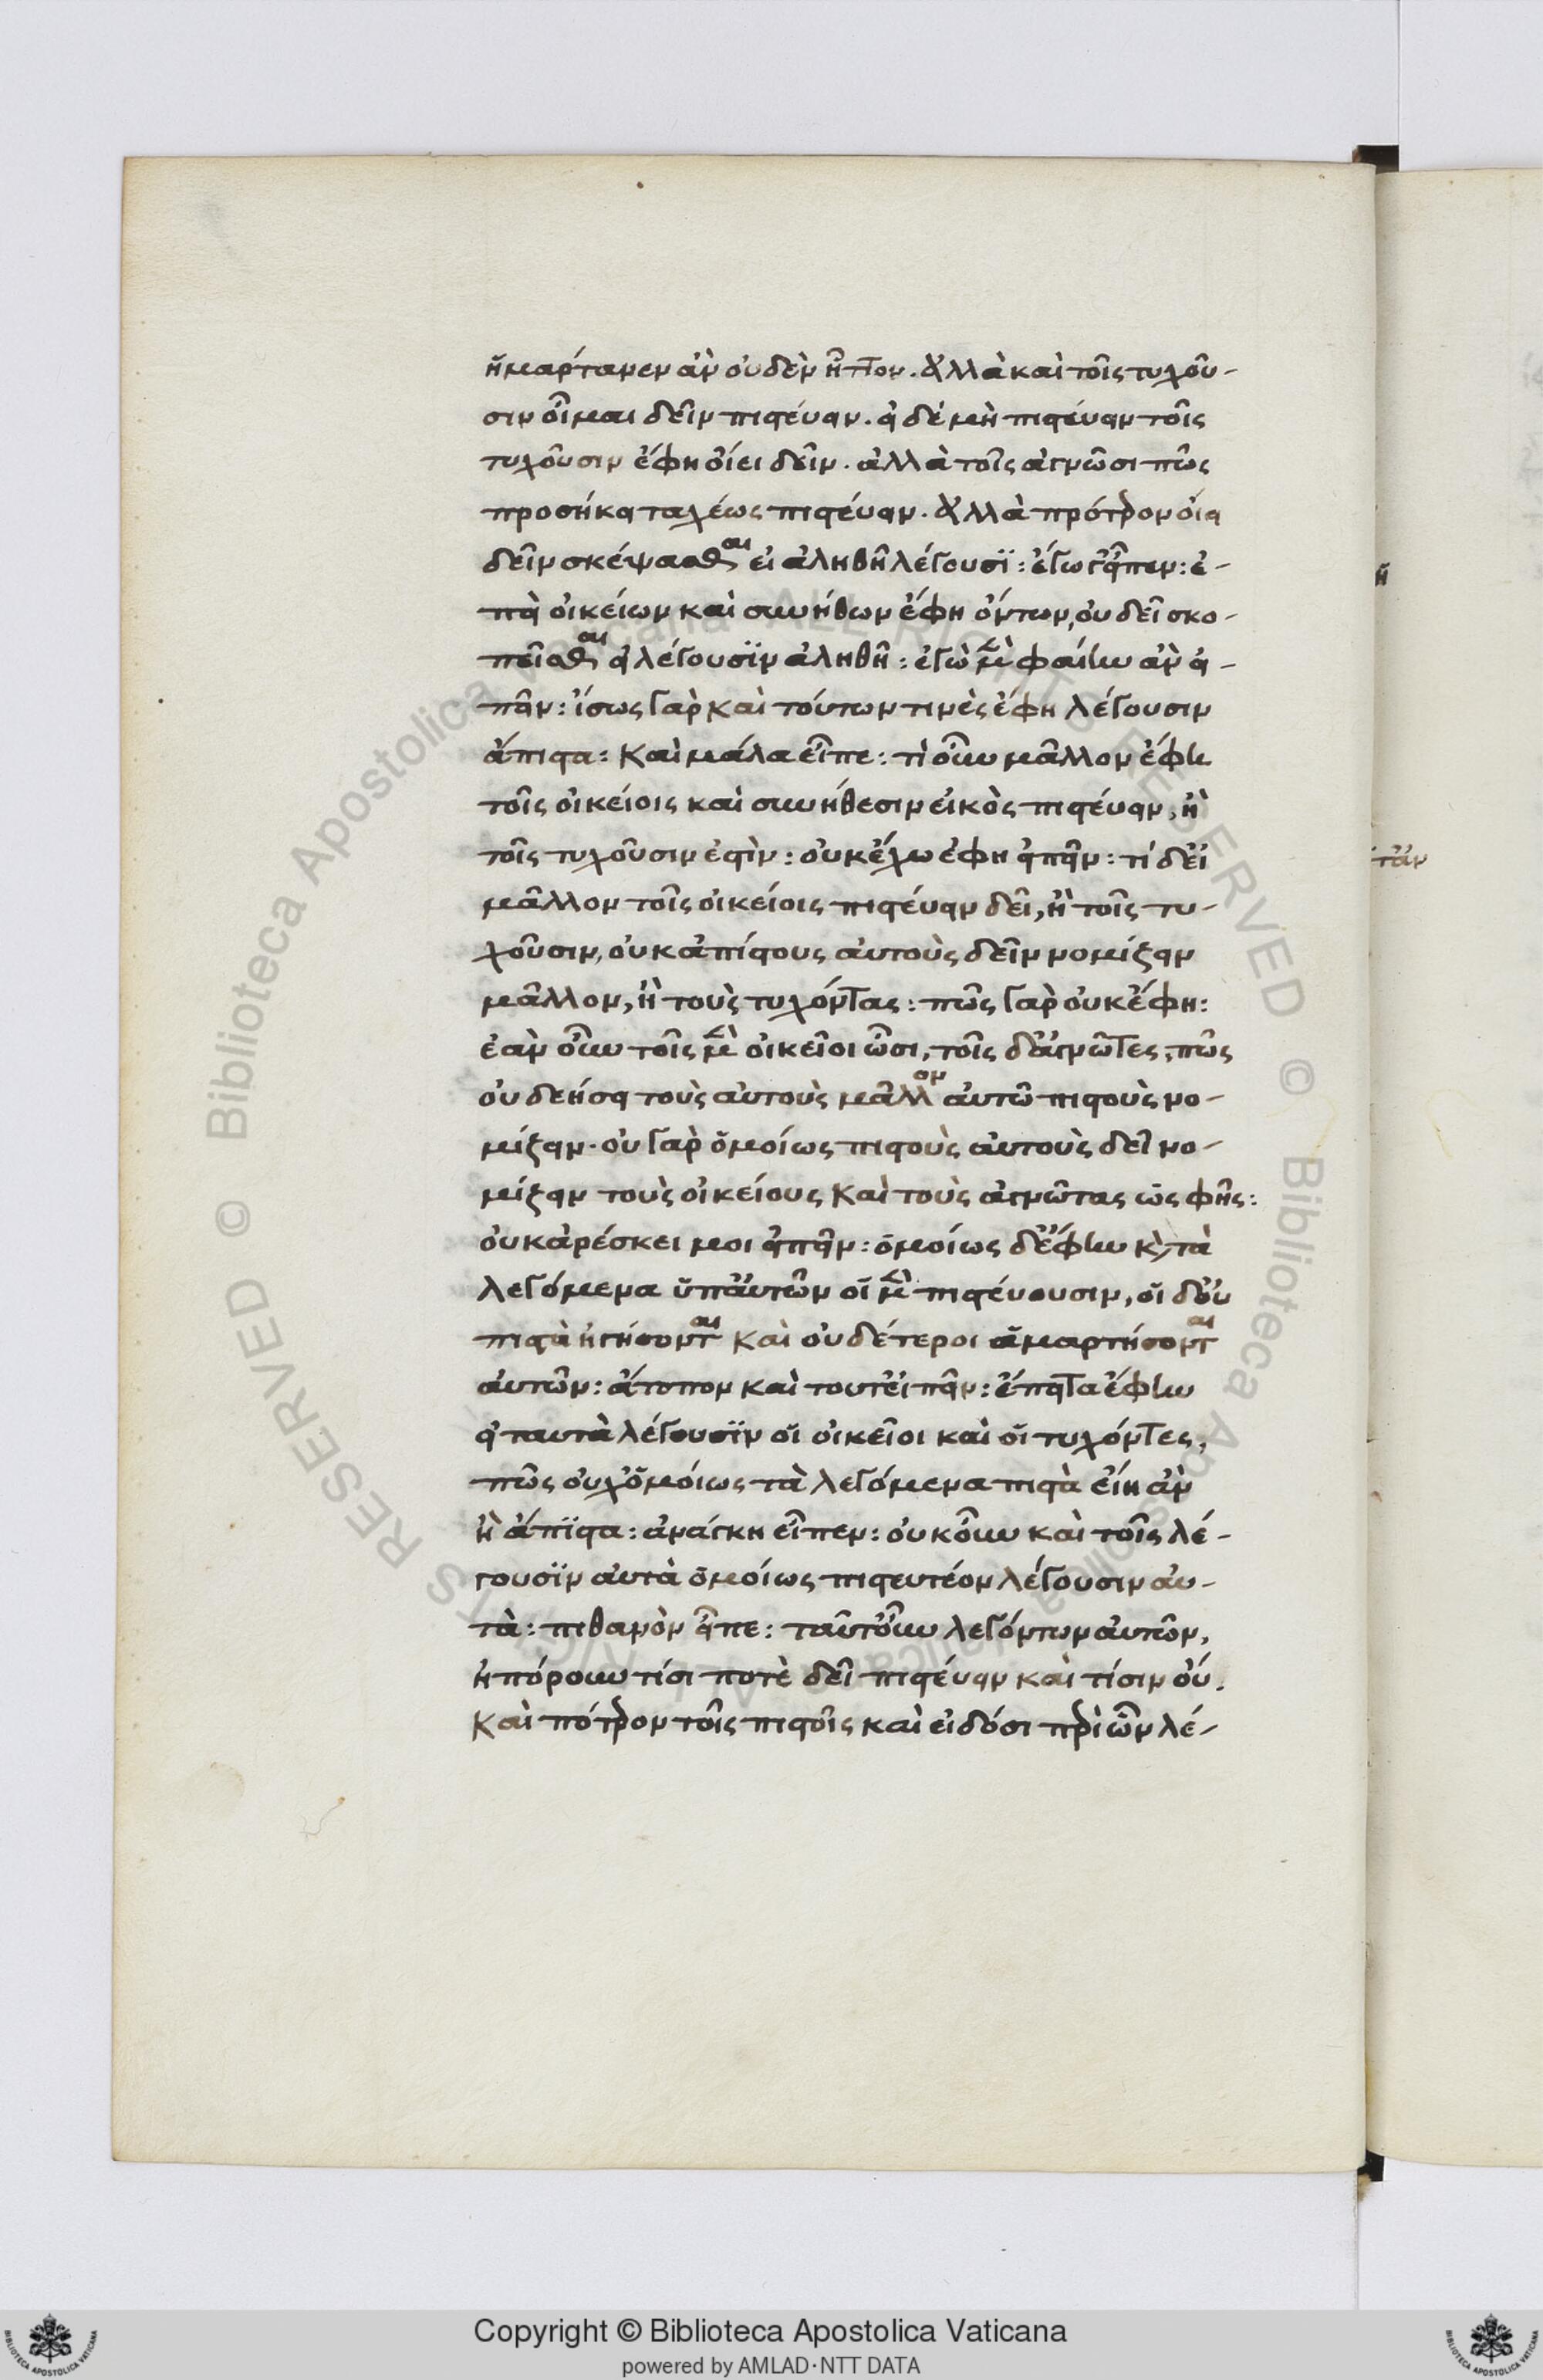 ἥμαρτανεν ἂν οὐδὲν ἧττον. Ἀλλὰ καὶ τοῖς τυχοῦ-
σιν οἶμαι δεῖν πιστεύειν. εἰ δὲ μὴ πιστεύειν τοῖς
τυχοῦσιν ἔφη οἴει δεῖν. ἀλλὰ τοῖς ἀγνῶσι πῶς
προσήκει ταχέως πιστεύειν. Ἀλλὰ πρότερον οἴει
δεῖν σκέψασθαι εἰ ἀληθῆ λέγουσϊ: ἔγωγ' εἶπεν: ἐ-
πεὶ οἰκείων καὶ συνήθων ἔφη ὄντων, οὐ δεῖ σκο-
πεῖσθαι εἰ λέγουσϊν ἀληθῆ: ἐγὼ μὲν φαίην ἂν εἰ-
πεῖν: ἴσως γὰρ καὶ τούτων τινὲς ἔφη λέγουσιν
ἄπιστα: Καὶ μάλα εἶπε: τὶ οὖν μᾶλλον ἔφην
τοῖς οἰκείοις καὶ συνήθεσιν εἰκὸς πιστεύειν, ἢ
τοῖς τυχοῦσιν ἐστὶν: οὐκ ἔχω ἔφη εἰπεῖν: τί δ' εἰ
μᾶλλον τοῖς οἰκείοις πιστεύειν δεῖ, ἢ τοῖς τυ-
χοῦσιν, οὐκ ἀπίστους αὐτοὺς δεῖν νομίζειν
μᾶλλον, ἢ τοὺς τυχόντας: πῶς γὰρ οὐκ ἔφη:
ἐὰν οὖν τοῖς μὲν οἰκεῖοι ὦσι, τοῖς δ' ἀγνῶτες, πῶς
οὐ δεήσει τοὺς αὐτοὺς μᾶλλον αὐτῶ πιστοὺς νο-
μίζειν. οὐ γὰρ ὁμοίως πιστοὺς αὐτοὺς δεῖ νο-
μίζειν τοὺς οἰκείους καὶ τοὺς ἀγνῶτας ὡς φῆς:
οὐκ ἀρέσκει μοι εἰπεῖν: ὁμοίως δ' ἔφην κὶ τὰ
λεγόμενα ὑπ' αὐτῶν οἱ μὲν πιστεύουσιν, οἱ δ' οὐ
πιστὰ ἡγήσονται Καὶ οὐδέτεροι ἁμαρτήσονται
αὐτῶν: ἄτοπον καὶ τουτ' εἰπεῖν: ἔπειτα ἔφην
εἰ ταυτὰ λέγουσϊν οἱ οἰκεῖοι καὶ οἱ τυχόντες,
πῶς οὐχ' ὁμοίως τὰ λεγόμενα πιστὰ εἴη ἂν
ἢ ἄπϊστα: ἀνάγκη εἶπεν: οὐκοῦν καὶ τοῖς λέ-
γουσϊν αὐτὰ ὁμοίως πιστευτέον λέγουσιν αὐ-
τὰ: πιθανὸν εἶπε: ταῦτ' οὖν λεγόντων αὐτῶν,
ἠπόρουν τίσι ποτὲ δεῖ πιστεύειν καὶ τίσιν οὔ.
Καὶ πότερον τοῖς πιστοῖς καὶ εἰδόσι περὶ ὧν λέ-
Copyright © Biblioteca Apostolica Vaticana
powered by AMLAD·NTT DATA